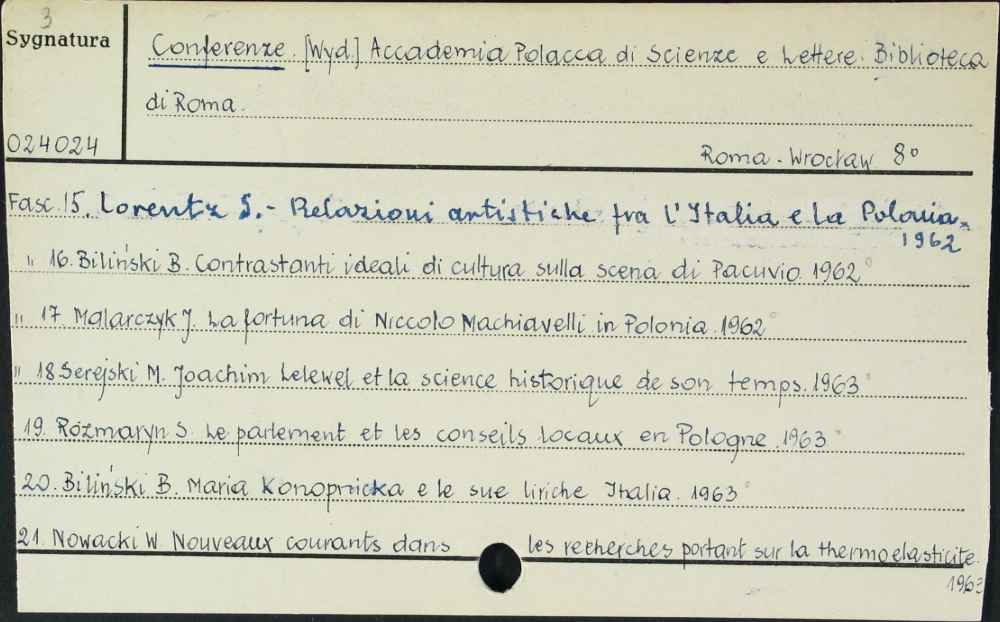 3
Sygnatura
Conferenze. [Wyd.] Accademia Polacca di Scienze e Lettere. Biblioteca
di Roma.
024024
Roma - Wrocław 8°
Fasc. 15. Lorentz S. - Relazioni artistiche fra l'Italia e la Polonia.
1962
" 16. Biliński B. Contrastanti ideali di cultura sulla scena di Pacuvio. 1962
" 17. Malarczyk J. La fortuna di Niccolo Machiavelli in Polonia. 1962
" 18 Serejski M. Joachim Lelewel et la science historique de son temps. 1963
19. Rozmaryn S. Le parlement et les conseils locaux en Pologne. 1963
20. Biliński B. Maria Konopnicka e le sue liriche Italia. 1963
21. Nowacki W Nouveaux courants dans les recherches portant sur la thermoelasticite.
1963